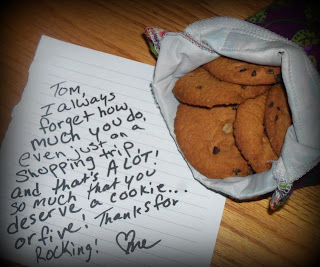 Tom,
I always
forget how
much you do,
even just on a
shopping trip,
and that's A LOT!
so much that you
deserve a cookie...
or five! Thanks for
Rocking! ♡me